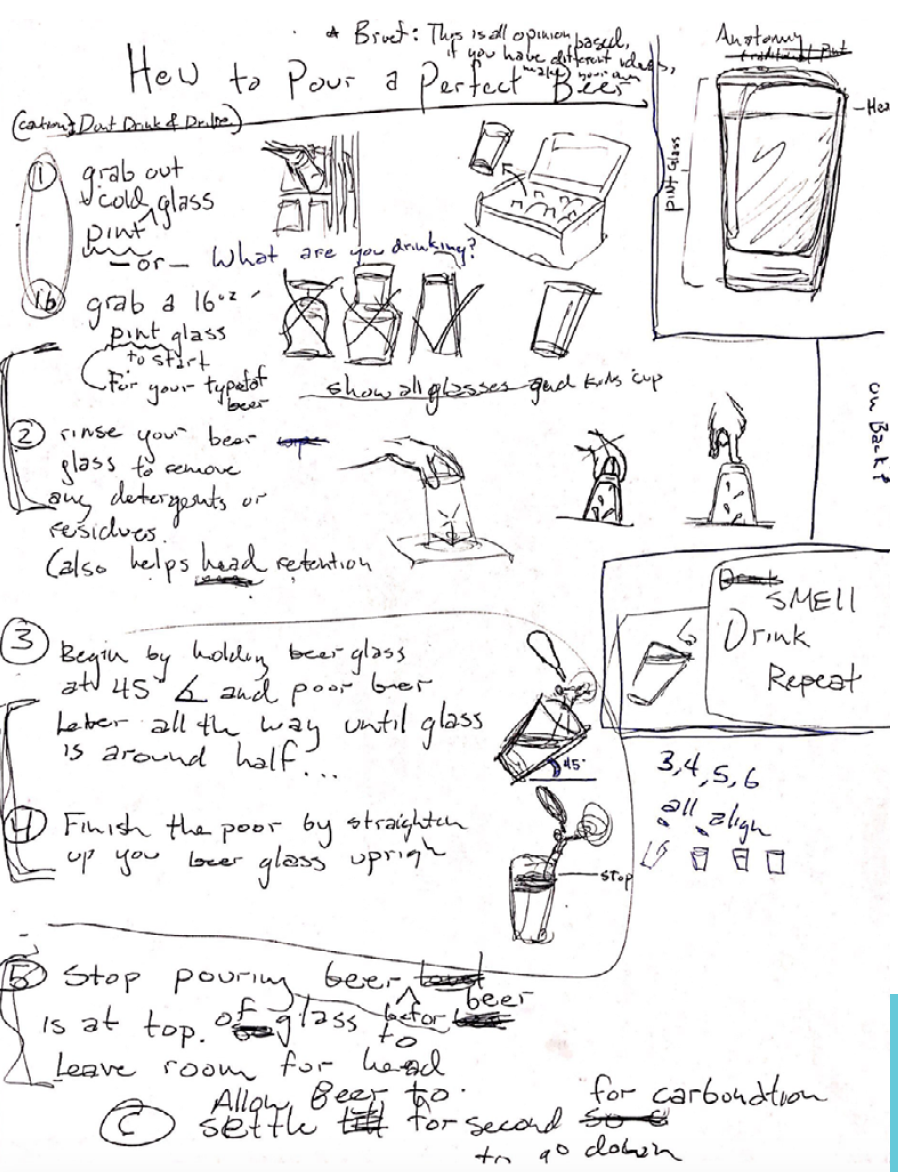 * Bruet: This is all opinion based,
if you have different ideas,
make your own
How to Pour a Perfect Beer
(cation: Dont Drink & Drive)
Anatomy
pint glass
1 grab out
cold glass
pint
- or - What are you drinking?
1b grab a 16oz
pint glass
to start
For your type of
beer
show all glasses and kids cup
on Back?
2 rinse your beer
glass to remove
any detergents or
residues.
(also helps head retention
SMELL
Drink
Repeat
3 Begin by holding beer glass
at 45° and poor beer
all the way until glass
is around half...
45°
3,4,5,6
all align
4 Finish the poor by straighten
up you beer glass uprigh
stop
5 Stop pouring beer
beer
is at top. of glass befor
to
Leave room for head
6 Allow Beer to for carbondtion
settle for second
to go down